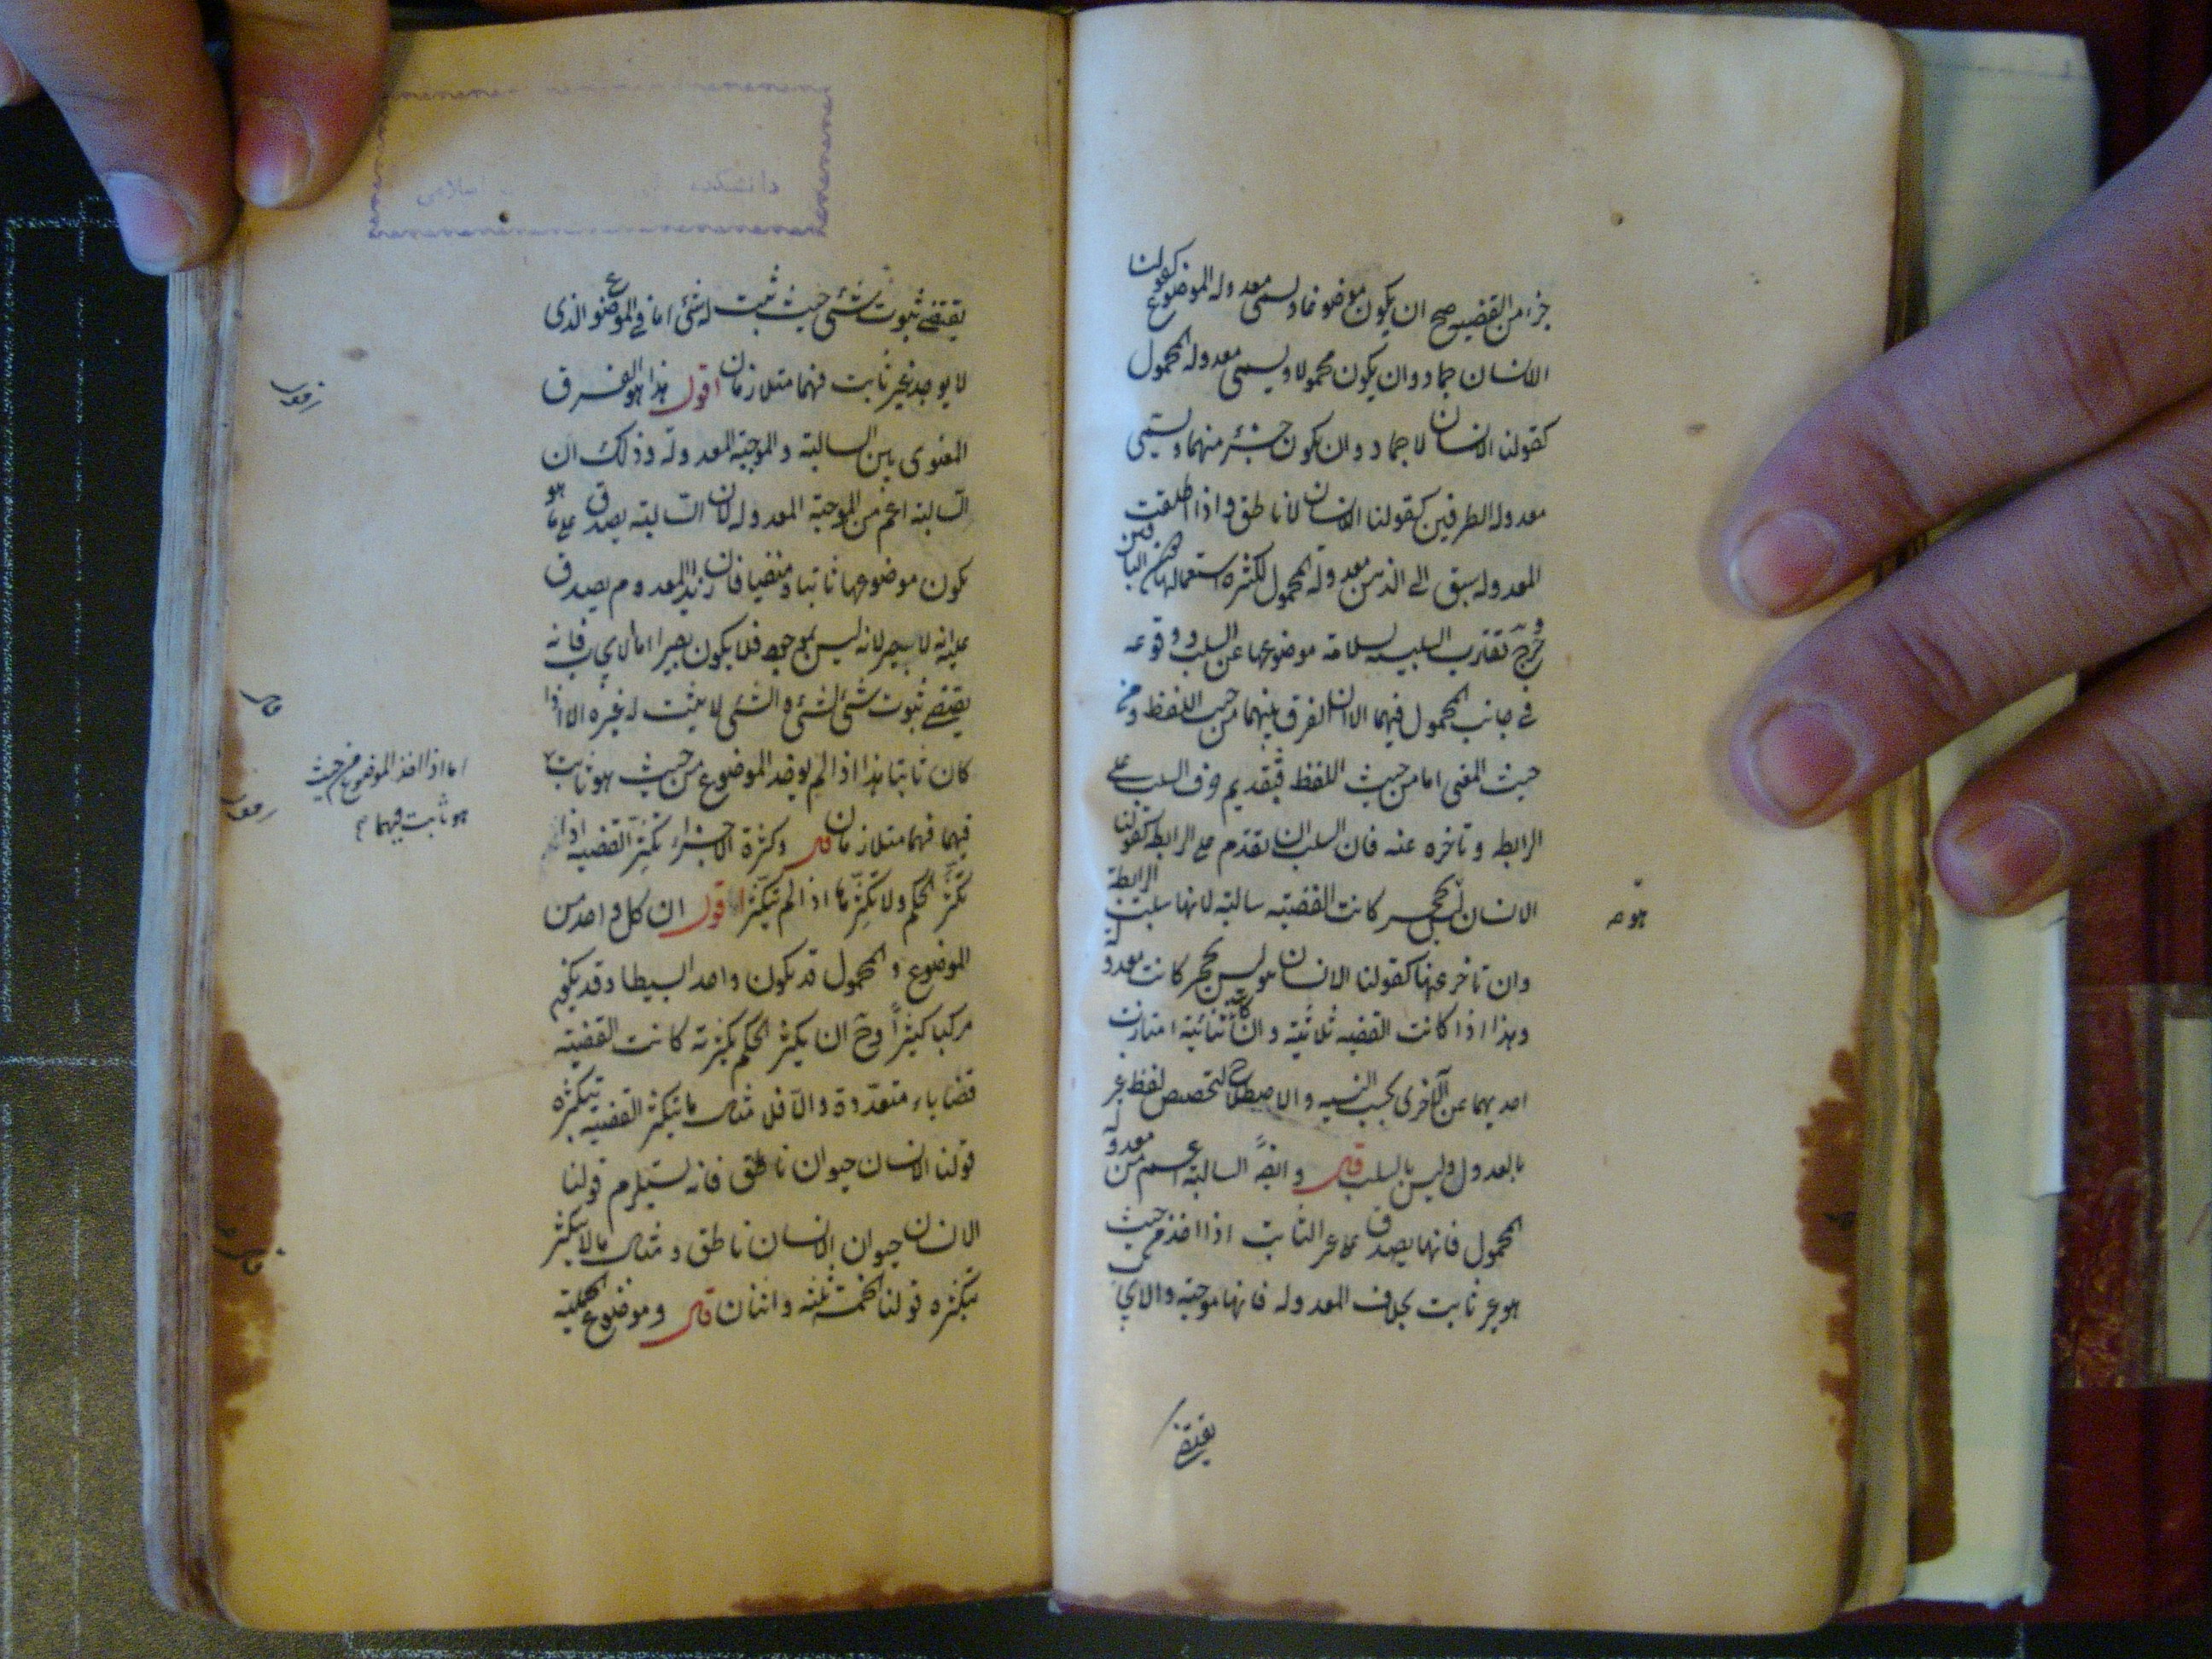 جزء من القضيه صح ان يكون موضوعا ويسمى معدوله الموضوع كقولنا
الانسان جماد وان يكون محمولا ويسمى معدوله المحمول
كقولنا الانسان لا جماد وان يكون جزء منهما ويسمى
معدوله الطرفين كقولنا الانسان لا ناطق واذا اطلقت
المعدوله سبق الى الذهن معدولة المحمول لكثرة استعمالها
تقترب السلبيه لسلامة موضوعها عن السلب ووقوعه
في جانب المحمول فيهما الا ان الفرق بينهما من حيث اللفظ ومن
حيث المعنى اما من حيث اللفظ فبتقديم حرف السلب على
الرابط وتاخره عنه فان السلب ان تقدم على الرابط كقولنا
الانسان ليس بحجر كانت القضيه سالبه لانها سلبت الرابطة
هو
وان تاخر عنها كقولنا الانسان هو ليس بحجر كانت معدولة
وهذا اذا كانت القضيه ثلاثية وان كانت ثنائية امتازت
احديهما عن الاخرى بحسب النسبه والاصطلاح لتخصيص لفظ غير
بالعدول وليس بالسلب قال وايضا السالبة اعم من معدولة
المحمول فانها يصدق على غير الثابت اذا اخذ من حيث
هو غير ثابت بخلاف المعدوله فانها موجبة والايجاب
يقتضى
يقتضى ثبوت شئ حيث ثبت له شئ اما في الموضوع الذى
لا يوجد غير ثابت فهما متلازمان اقول هذا هو الفرق
المعنوى بين السالبة والموجبة المعدولة وذلك ان
السالبة اعم من الموجبة المعدوله لان السالبة يصدق على ما هو
يكون موضوعها ثابتا ومنفيا فان زيد المعدوم يصدق
عليه انه لا بصير لانه ليس بموجود فلا يكون بصيرا اما الايجاب فانه
يقتضى ثبوت شئ لشئ والشئ لا يثبت له غيره الا اذا
كان ثابتا هذا اذا لم يوخذ الموضوع من حيث هو ثابت
اما اذا اخذ الموضوع من حيث
هو ثابت فيهما
فيهما فهما متلازمان قال وكثرة الاجزاء تكثر القضيه اذا
تكثر الحكم ولا تكثرها اذا لم يتكثر اقول ان كل واحد من
الموضوع والمحمول قد يكون واحدا بسيطا وقد يكون
مركبا كثيرا وح ان يكثر الحكم بكثرته كانت القضية
قضاياء متعددة والا فلا مثال ما يتكثر القضية بتكثره
قولنا الانسان حيوان ناطق فانه يستلزم قولنا
الانسان حيوان الانسان ناطق ومثال ما لا يتكثر
بتكثره قولنا الخمسة ثلثه واثنان قال وموضوع الحملية